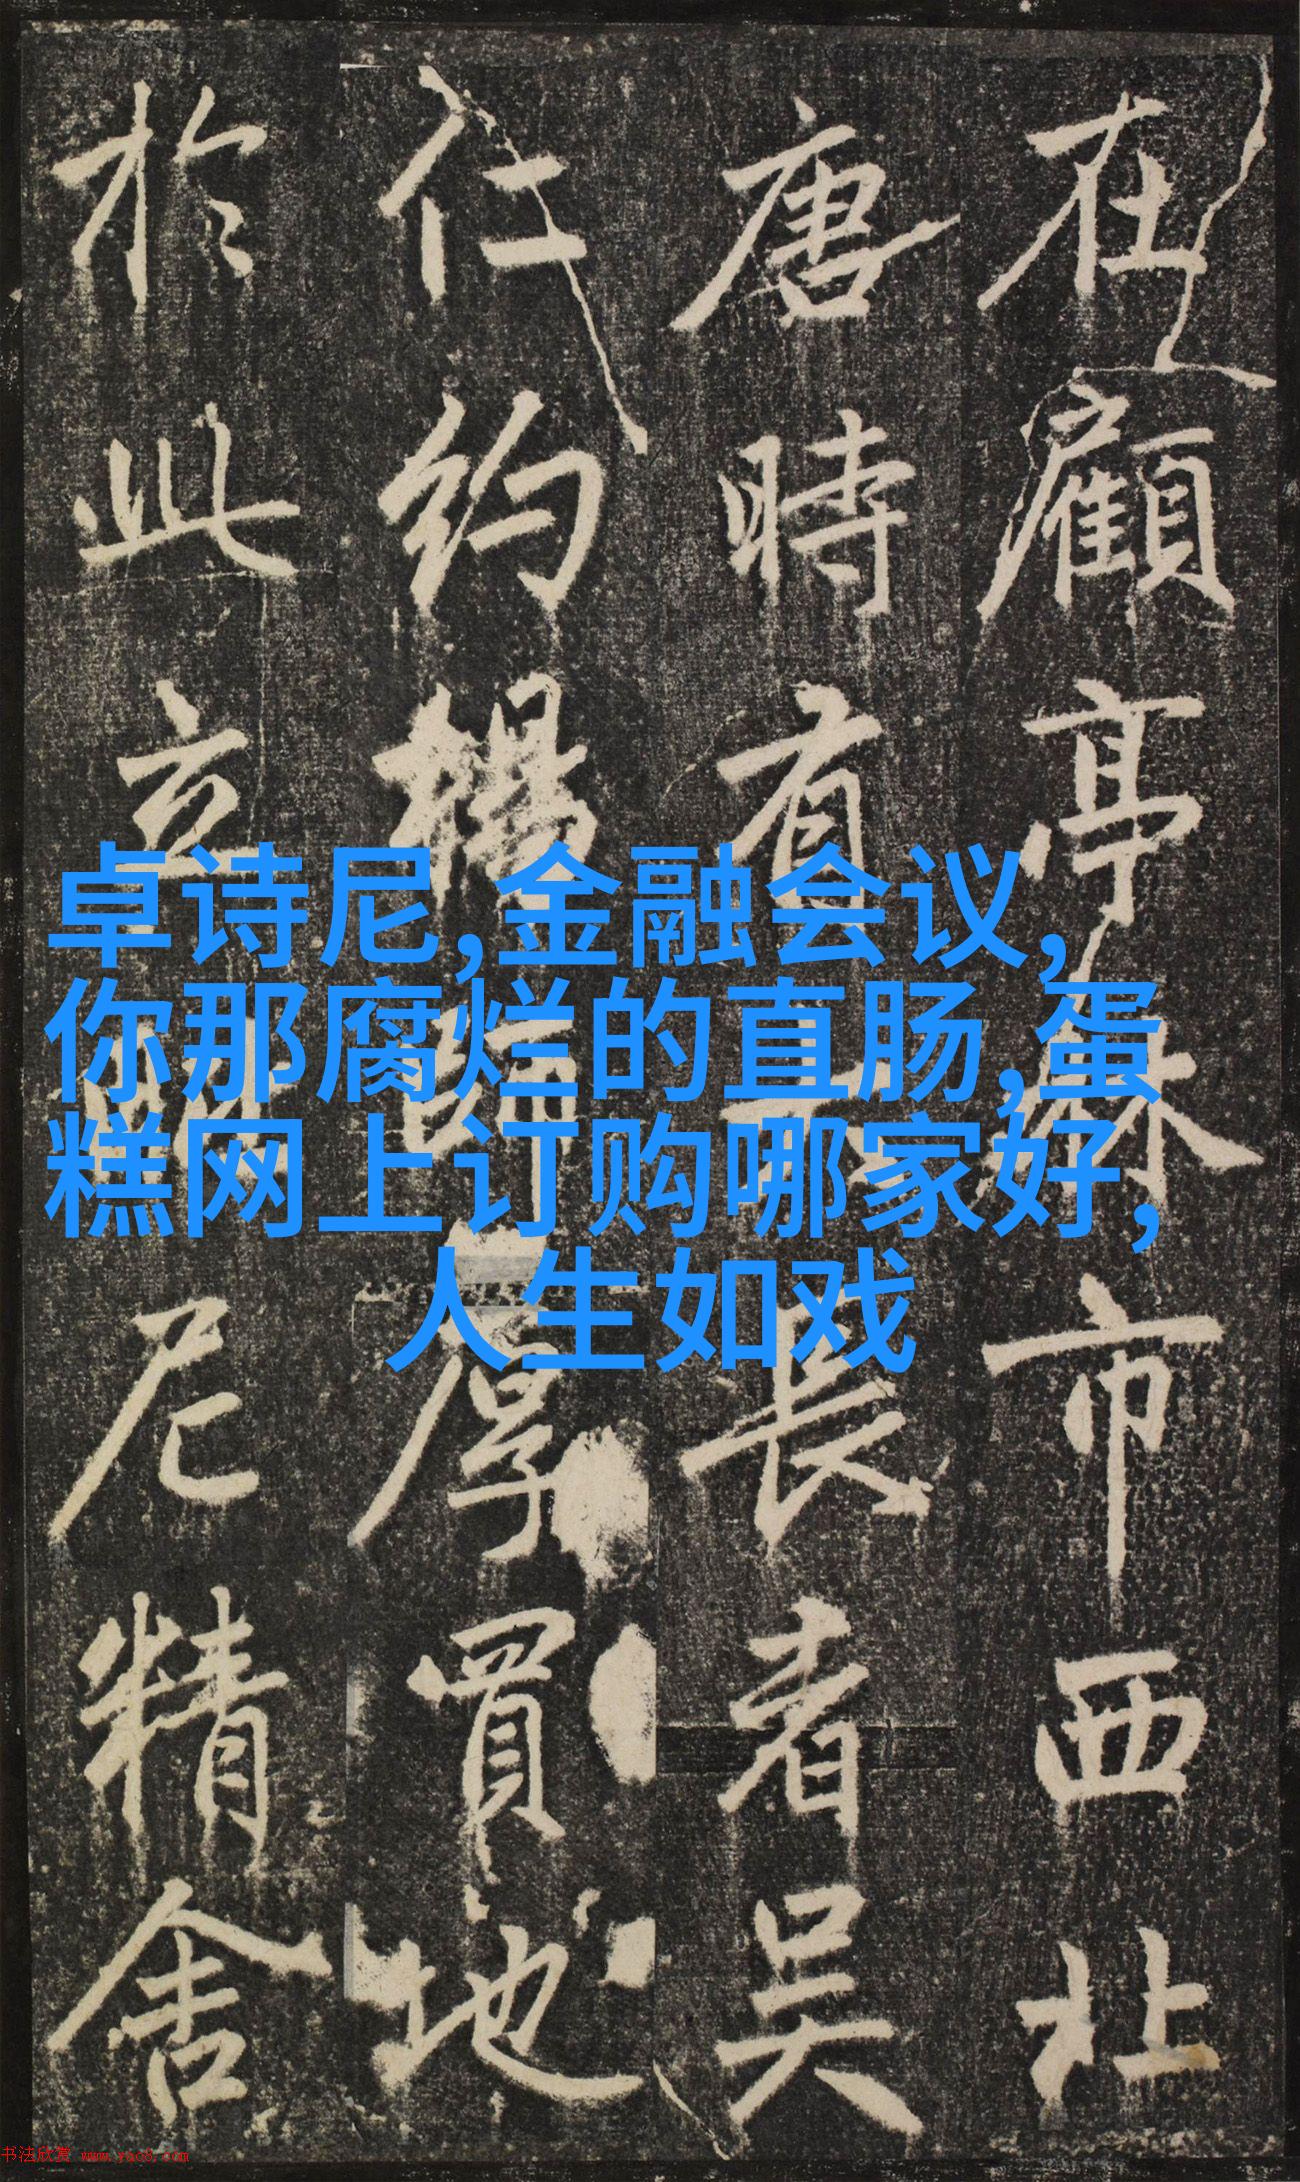 在顧亭林市西北
唐時有長者吳
仁約厚買地
於此立尼精舍
卓诗尼,金融会议,
你那腐烂的直肠,蛋
糕网上订购哪家好,
人生如戏
书法欣赏 www.yac8.com